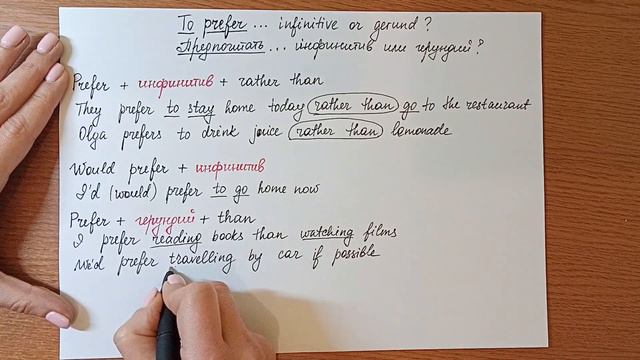 To prefer ... infinitive or gerund?
Предпочитать ... инфинитив или герундий?
Prefer + инфинитив + rather than
They prefer to stay home today rather than go to the restaurant
Olga prefers to drink juice rather than lamonade
Would prefer + инфинитив
I'd (would) prefer to go home now
Prefer + герундий + than
I prefer reading books than watching films
We'd prefer travelling by car if possible